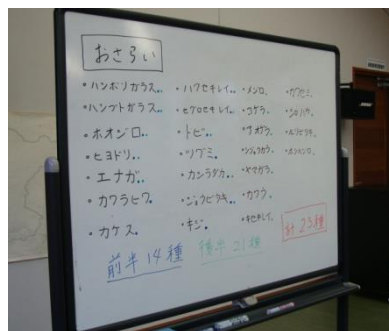 おさらい
・ハシボソガラス
・ハシブトガラス
・ホオジロ
・ヒヨドリ
・エナガ
・カワラヒワ
・カケス
・ハクセキレイ
・セグロセキレイ
・トビ
・ツグミ
・カシラダカ
・ジョウビタキ
・キジ
・メジロ
・コゲラ
・アオゲラ
・シジュウカラ
・ヤマガラ
・カワウ
・キセキレイ
・カワセミ
・シロハラ
・ルリビタキ
前半14種
後半21種
計25種